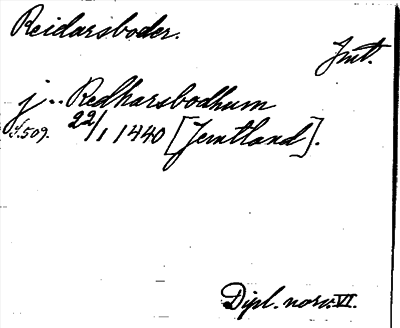 Reidarsboder.
Jmt.
j.. Redharsbodhum
S.509. 22/1 1440 [Jemtland].
Dipl. norv. VI.